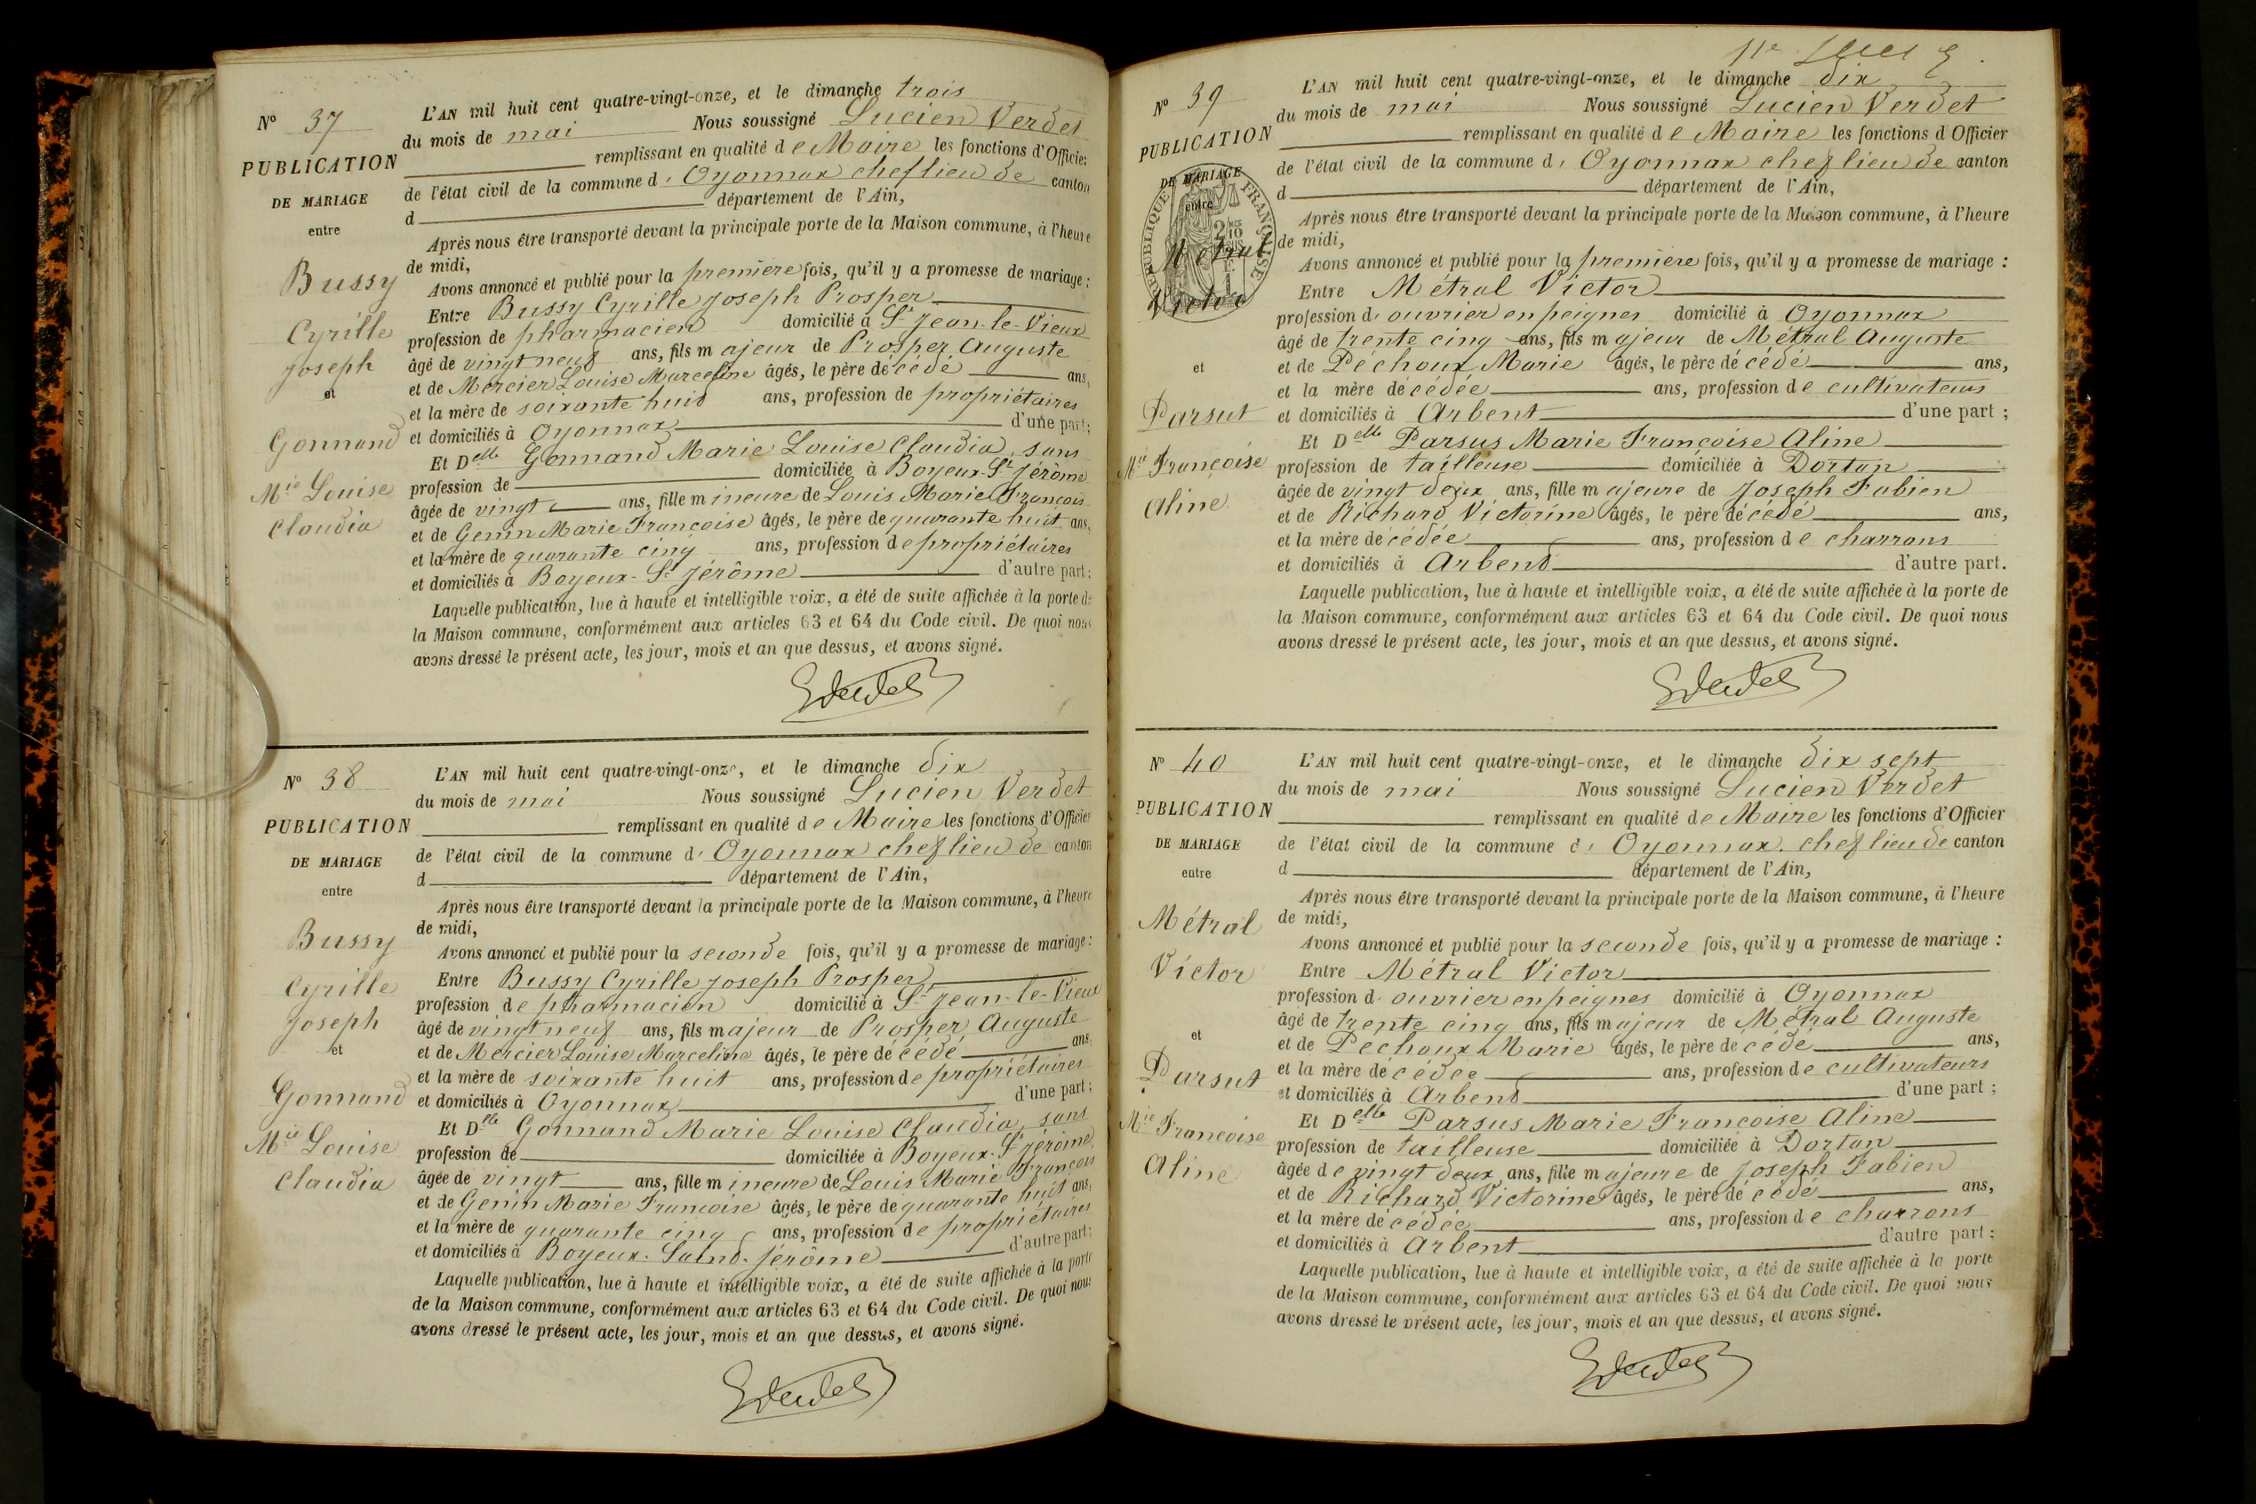 N° 37
PUBLICATION
DE MARIAGE
entre
Bussy
Cyrille
Joseph
et
Gonnand
Mie Louise
Claudia
L'AN mil huit cent quatre-vingt-onze, et le dimanche trois
du mois de mai Nous soussigné Lucien Verdet
remplissant en qualité de Maire les fonctions d'Officier
de l'état civil de la commune d' Oyonnax chef lieu de canton
d département de l'Ain,
Après nous être transporté devant la principale porte de la Maison commune, à l'heure
de midi,
Avons annoncé et publié pour la première fois, qu'il y a promesse de mariage :
Entre Bussy Cyrille Joseph Prosper
profession de pharmacien domicilié à St Jean-le-Vieux
âgé de vingt neuf ans, fils majeur de Prosper Auguste
et de Mercier Louise Marceline âgés, le père décédé ans,
et la mère de soixante huit ans, profession de propriétaires
et domiciliés à Oyonnax d'une part;
Et Delle Gonnand Marie Louise Claudia, sans
profession de domiciliée à Boyeux-St Jérôme
âgée de vingt ans, fille mineure de Louis Marie François
et de Genin Marie Françoise âgés, le père de quarante huit ans,
et la mère de quarante cinq ans, profession de propriétaires
et domiciliés à Boyeux-St Jérôme d'autre part;
Laquelle publication, lue à haute et intelligible voix, a été de suite affichée à la porte de
la Maison commune, conformément aux articles 63 et 64 du Code civil. De quoi nous
avons dressé le présent acte, les jour, mois et an que dessus, et avons signé.
N° 38
PUBLICATION
DE MARIAGE
entre
Bussy
Cyrille
Joseph
et
Gonnand
Mie Louise
Claudia
L'AN mil huit cent quatre-vingt-onze, et le dimanche dix
du mois de mai Nous soussigné Lucien Verdet
remplissant en qualité de Maire les fonctions d'Officier
de l'état civil de la commune d' Oyonnax chef lieu de canton
d département de l'Ain,
Après nous être transporté devant la principale porte de la Maison commune, à l'heure
de midi,
Avons annoncé et publié pour la seconde fois, qu'il y a promesse de mariage :
Entre Bussy Cyrille Joseph Prosper
profession de pharmacien domicilié à St Jean-le-Vieux
âgé de vingt neuf ans, fils majeur de Prosper Auguste
et de Mercier Louise Marceline âgés, le père décédé ans,
et la mère de soixante huit ans, profession de propriétaires
et domiciliés à Oyonnax d'une part;
Et Delle Gonnand Marie Louise Claudia, sans
profession de domiciliée à Boyeux-St Jérôme
âgée de vingt ans, fille mineure de Louis Marie François
et de Genin Marie Francoise âgés, le père de quarante huit ans,
et la mère de quarante cinq ans, profession de propriétaires
et domiciliés à Boyeux-Saint-Jérôme d'autre part;
Laquelle publication, lue à haute et intelligible voix, a été de suite affichée à la porte
de la Maison commune, conformément aux articles 63 et 64 du Code civil. De quoi nous
avons dressé le présent acte, les jour, mois et an que dessus, et avons signé.
N° 39
PUBLICATION
DE MARIAGE
entre
RÉPUBLIQUE FRANÇAISE
Métral
Victor
et
Parsut
Mie Françoise
Aline
L'AN mil huit cent quatre-vingt-onze, et le dimanche dix
du mois de mai Nous soussigné Lucien Verdet
remplissant en qualité de Maire les fonctions d'Officier
de l'état civil de la commune d' Oyonnax chef lieu de canton
d département de l'Ain,
Après nous être transporté devant la principale porte de la Maison commune, à l'heure
de midi,
Avons annoncé et publié pour la première fois, qu'il y a promesse de mariage :
Entre Métral Victor
profession d' ouvrier en peignes domicilié à Oyonnax
âgé de trente cinq ans, fils majeur de Métral Auguste
et de Péchoux Marie âgés, le père décédé ans,
et la mère décédée ans, profession de cultivateurs
et domiciliés à Arbent d'une part ;
Et Delle Parsus Marie Françoise Aline
profession de tailleuse domiciliée à Dortan
âgée de vingt deux ans, fille majeure de Joseph Fabien
et de Richard Victorine âgés, le père décédé ans,
et la mère décédée ans, profession de charrons
et domiciliés à Arbent d'autre part.
Laquelle publication, lue à haute et intelligible voix, a été de suite affichée à la porte de
la Maison commune, conformément aux articles 63 et 64 du Code civil. De quoi nous
avons dressé le présent acte, les jour, mois et an que dessus, et avons signé.
N° 40
PUBLICATION
DE MARIAGE
entre
Métral
Victor
et
Parsut
Mie Françoise
Aline
L'AN mil huit cent quatre-vingt-onze, et le dimanche dix sept
du mois de mai Nous soussigné Lucien Verdet
remplissant en qualité de Maire les fonctions d'Officier
de l'état civil de la commune d' Oyonnax. chef lieu de canton
d département de l'Ain,
Après nous être transporté devant la principale porte de la Maison commune, à l'heure
de midi,
Avons annoncé et publié pour la seconde fois, qu'il y a promesse de mariage :
Entre Métral Victor
profession d' ouvrier en peignes domicilié à Oyonnax
âgé de trente cinq ans, fils majeur de Métral Auguste
et de Péchoux Marie âgés, le père décédé ans,
et la mère décédée ans, profession de cultivateurs
et domiciliés à Arbent d'une part ;
Et Delle Parsus Marie Francoise Aline
profession de tailleuse domiciliée à Dortan
âgée de vingt deux ans, fille majeure de Joseph Fabien
et de Richard Victorine âgés, le père décédé ans,
et la mère décédée ans, profession de charrons
et domiciliés à Arbent d'autre part ;
Laquelle publication, lue à haute et intelligible voix, a été de suite affichée à la porte
de la Maison commune, conformément aux articles 63 et 64 du Code civil. De quoi nous
avons dressé le présent acte, les jour, mois et an que dessus, et avons signé.